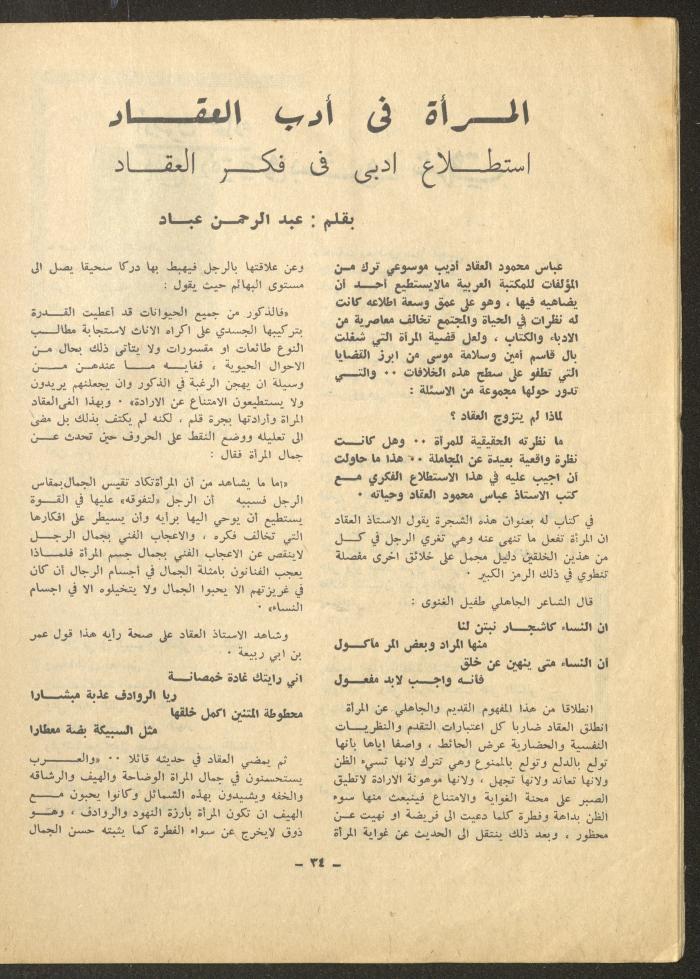 المرأة فى أدب العقاد
استطلاع ادبى فى فكر العقاد
بقلم : عبد الرحمن عباد
عباس محمود العقاد أديب موسوعي ترك من
المؤلفات للمكتبة العربية مالايستطيع أحد أن
يضاهيه فيها ، وهو على عمق وسعة اطلاعه كانت
له نظرات في الحياة والمجتمع تخالف معاصرية من
الادباء والكتاب ، ولعل قضية المرأة التي شغلت
بال قاسم أمين وسلامة موسى من ابرز القضايا
التي تطفو على سطح هذه الخلافات ٠٠ والتي
تدور حولها مجموعة من الاسئلة :
لماذا لم يتزوج العقاد ؟
ما نظرته الحقيقية للمرأة ٠٠ وهل كانت
نظرة واقعية بعيدة عن المجاملة ٠٠ هذا ما حاولت
أن اجيب عليه في هذا الاستطلاع الفكري مع
كتب الاستاذ عباس محمود العقاد وحياته ٠
في كتاب له بعنوان هذه الشجرة يقول الاستاذ العقاد
ان المرأة تفعل ما تنهى عنه وهي تغري الرجل في كل
من هذين الخلقين دليل مجمل على خلائق اخرى مفصلة
تنطوي في ذلك الرمز الكبير ٠
قال الشاعر الجاهلي طفيل الغنوى :
ان النساء كاشجار نبتن لنا
منها المراد وبعض المر مأكول
ان النساء متى ينهين عن خلق
فانه واجب لابد مفعول
انطلاقا من هذا المفهوم القديم والجاهلي عن المرأة
انطلق العقاد ضاربا كل اعتبارات التقدم والنظريات
النفسية والحضارية عرض الحائط ، واصفا اياها بأنها
تولع بالدلع وتولع بالممنوع وهي تترك لانها تسيء الظن
ولانها تعاند ولانها تجهل ، ولانها موهونة الارادة لاتطيق
الصبر على محنة الغواية والامتناع فينبعث منها سوء
الظن بداهة وفطرة كلما دعيت الى فريضة او نهيت عن
محظور ، وبعد ذلك ينتقل الى الحديث عن غواية المرأة
وعن علاقتها بالرجل فيهبط بها دركا سحيقا يصل الى
مستوى البهائم حيث يقول :
«فالذكور من جميع الحيوانات قد أعطيت القدرة
بتركيبها الجسدي على اكراه الاناث لاستجابة مطالب
النوع طائعات او مقسورات ولا يتأتى ذلك بحال من
الاحوال الحيوية ، فغايسه ما عندهن من
وسيلة ان يهجن الرغبة في الذكور وان يجعلنهم يريدون
ولا يستطيعون الامتناع عن الارادة» ٠ وبهذا الغى العقاد
المراة وأرادتها بجرة قلم ، لكنه لم يكتف بذلك بل مضى
الى تعليله ووضع النقط على الحروف حين تحدث عن
جمال المرأة فقال :
«اما ما يشاهد من أن المرأة تكاد تقيس الجمال بمقاس
الرجل فسببه أن الرجل «لتفوقه» عليها في القوة
يستطيع أن يوحي اليها برأيه وأن يسيطر على افكارها
التي تخالف فكره ، والاعجاب الفني بجمال الرجل
لاينفص عن الاعجاب الفني بجمال جسم المرأة فلماذا
يعجب الفنانون بأمثلة الجمال في أجسام الرجال أن كان
في غريزتهم الا يحبوا الجمال ولا يتخيلوه الا في اجسام
النساء» ٠
وشاهد الاستاذ العقاد على صحة رأيه هذا قول عمر
بن ابي ربيعة ٠
اني رايتك غادة خمصانة
ريا الروادف عذبة مبشارا
محطوطة المتنين اكمل خلقها
مثل السبيكة بضة معطارا
ثم يمضي العقاد في حديثه قائلا ٠٠ «والعرب
يستحسنون في جمال المراة الوضاحة والهيف والرشاقه
والخفه ويشيدون بهذه الشمائل وكانوا يحبون مع
الهيف ان تكون المرأة بارزة النهود والروادف ، وهو
ذوق لايخرج عن سواء الفطرة كما يثبته حسن الجمال
– ٣٤ –